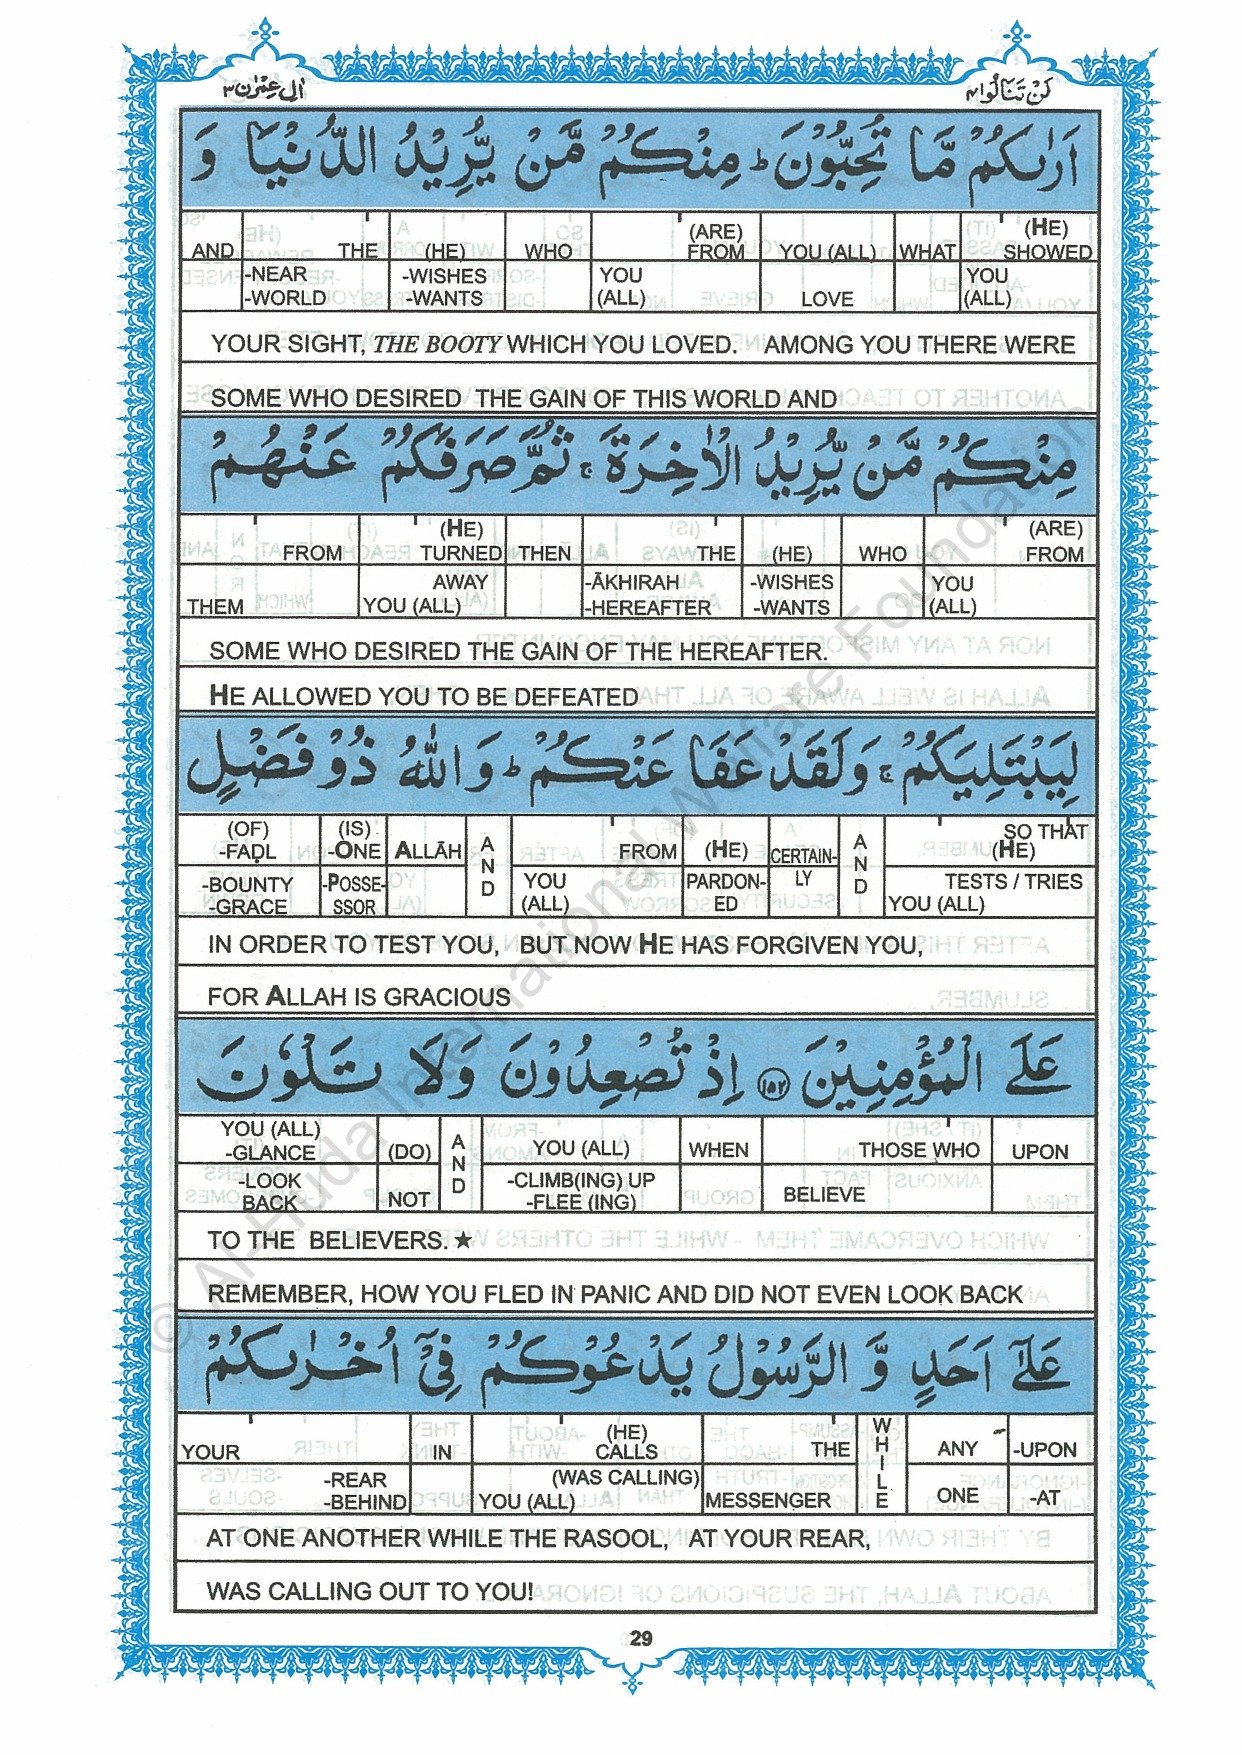 اٰلِ عِمْرٰن ٣
لَنْ تَنَالُوا ٤
اَرٰىكُمْ مَّا تُحِبُّوْنَ ؕ مِنْكُمْ مَّنْ يُّرِيْدُ الدُّنْيَا وَ
AND THE (HE) WHO (ARE) FROM YOU (ALL) WHAT (HE) SHOWED
-NEAR -WORLD -WISHES -WANTS YOU (ALL) LOVE YOU (ALL)
YOUR SIGHT, THE BOOTY WHICH YOU LOVED. AMONG YOU THERE WERE
SOME WHO DESIRED THE GAIN OF THIS WORLD AND
مِنْكُمْ مَّنْ يُّرِيْدُ الْاٰخِرَةَ ۚ ثُمَّ صَرَفَكُمْ عَنْهُمْ
FROM (HE) TURNED THEN THE (HE) WHO (ARE) FROM
THEM AWAY YOU (ALL) -ĀKHIRAH -HEREAFTER -WISHES -WANTS YOU (ALL)
SOME WHO DESIRED THE GAIN OF THE HEREAFTER.
HE ALLOWED YOU TO BE DEFEATED
لِيَبْتَلِيَكُمْ ۚ وَلَقَدْ عَفَا عَنْكُمْ ؕ وَاللّٰهُ ذُوْ فَضْلٍ
(OF) -FAḌL (IS) -ONE ALLĀH AND FROM (HE) CERTAIN- AND SO THAT (HE)
-BOUNTY -GRACE -POSSE-SSOR YOU (ALL) PARDON-ED LY TESTS / TRIES YOU (ALL)
IN ORDER TO TEST YOU, BUT NOW HE HAS FORGIVEN YOU,
FOR ALLAH IS GRACIOUS
عَلَى الْمُؤْمِنِيْنَ ۝١٥٢ اِذْ تُصْعِدُوْنَ وَلَا تَلْوٗنَ
YOU (ALL) -GLANCE (DO) AND YOU (ALL) WHEN THOSE WHO UPON
-LOOK BACK NOT -CLIMB(ING) UP -FLEE (ING) BELIEVE
TO THE BELIEVERS.★
REMEMBER, HOW YOU FLED IN PANIC AND DID NOT EVEN LOOK BACK
عَلٰٓى اَحَدٍ وَّ الرَّسُوْلُ يَدْعُوْكُمْ فِيْٓ اُخْرٰىكُمْ
YOUR IN (HE) CALLS THE WHILE ANY -UPON
-REAR -BEHIND (WAS CALLING) YOU (ALL) MESSENGER ONE -AT
AT ONE ANOTHER WHILE THE RASOOL, AT YOUR REAR,
WAS CALLING OUT TO YOU!
29
© Al-Huda International Welfare Foundation